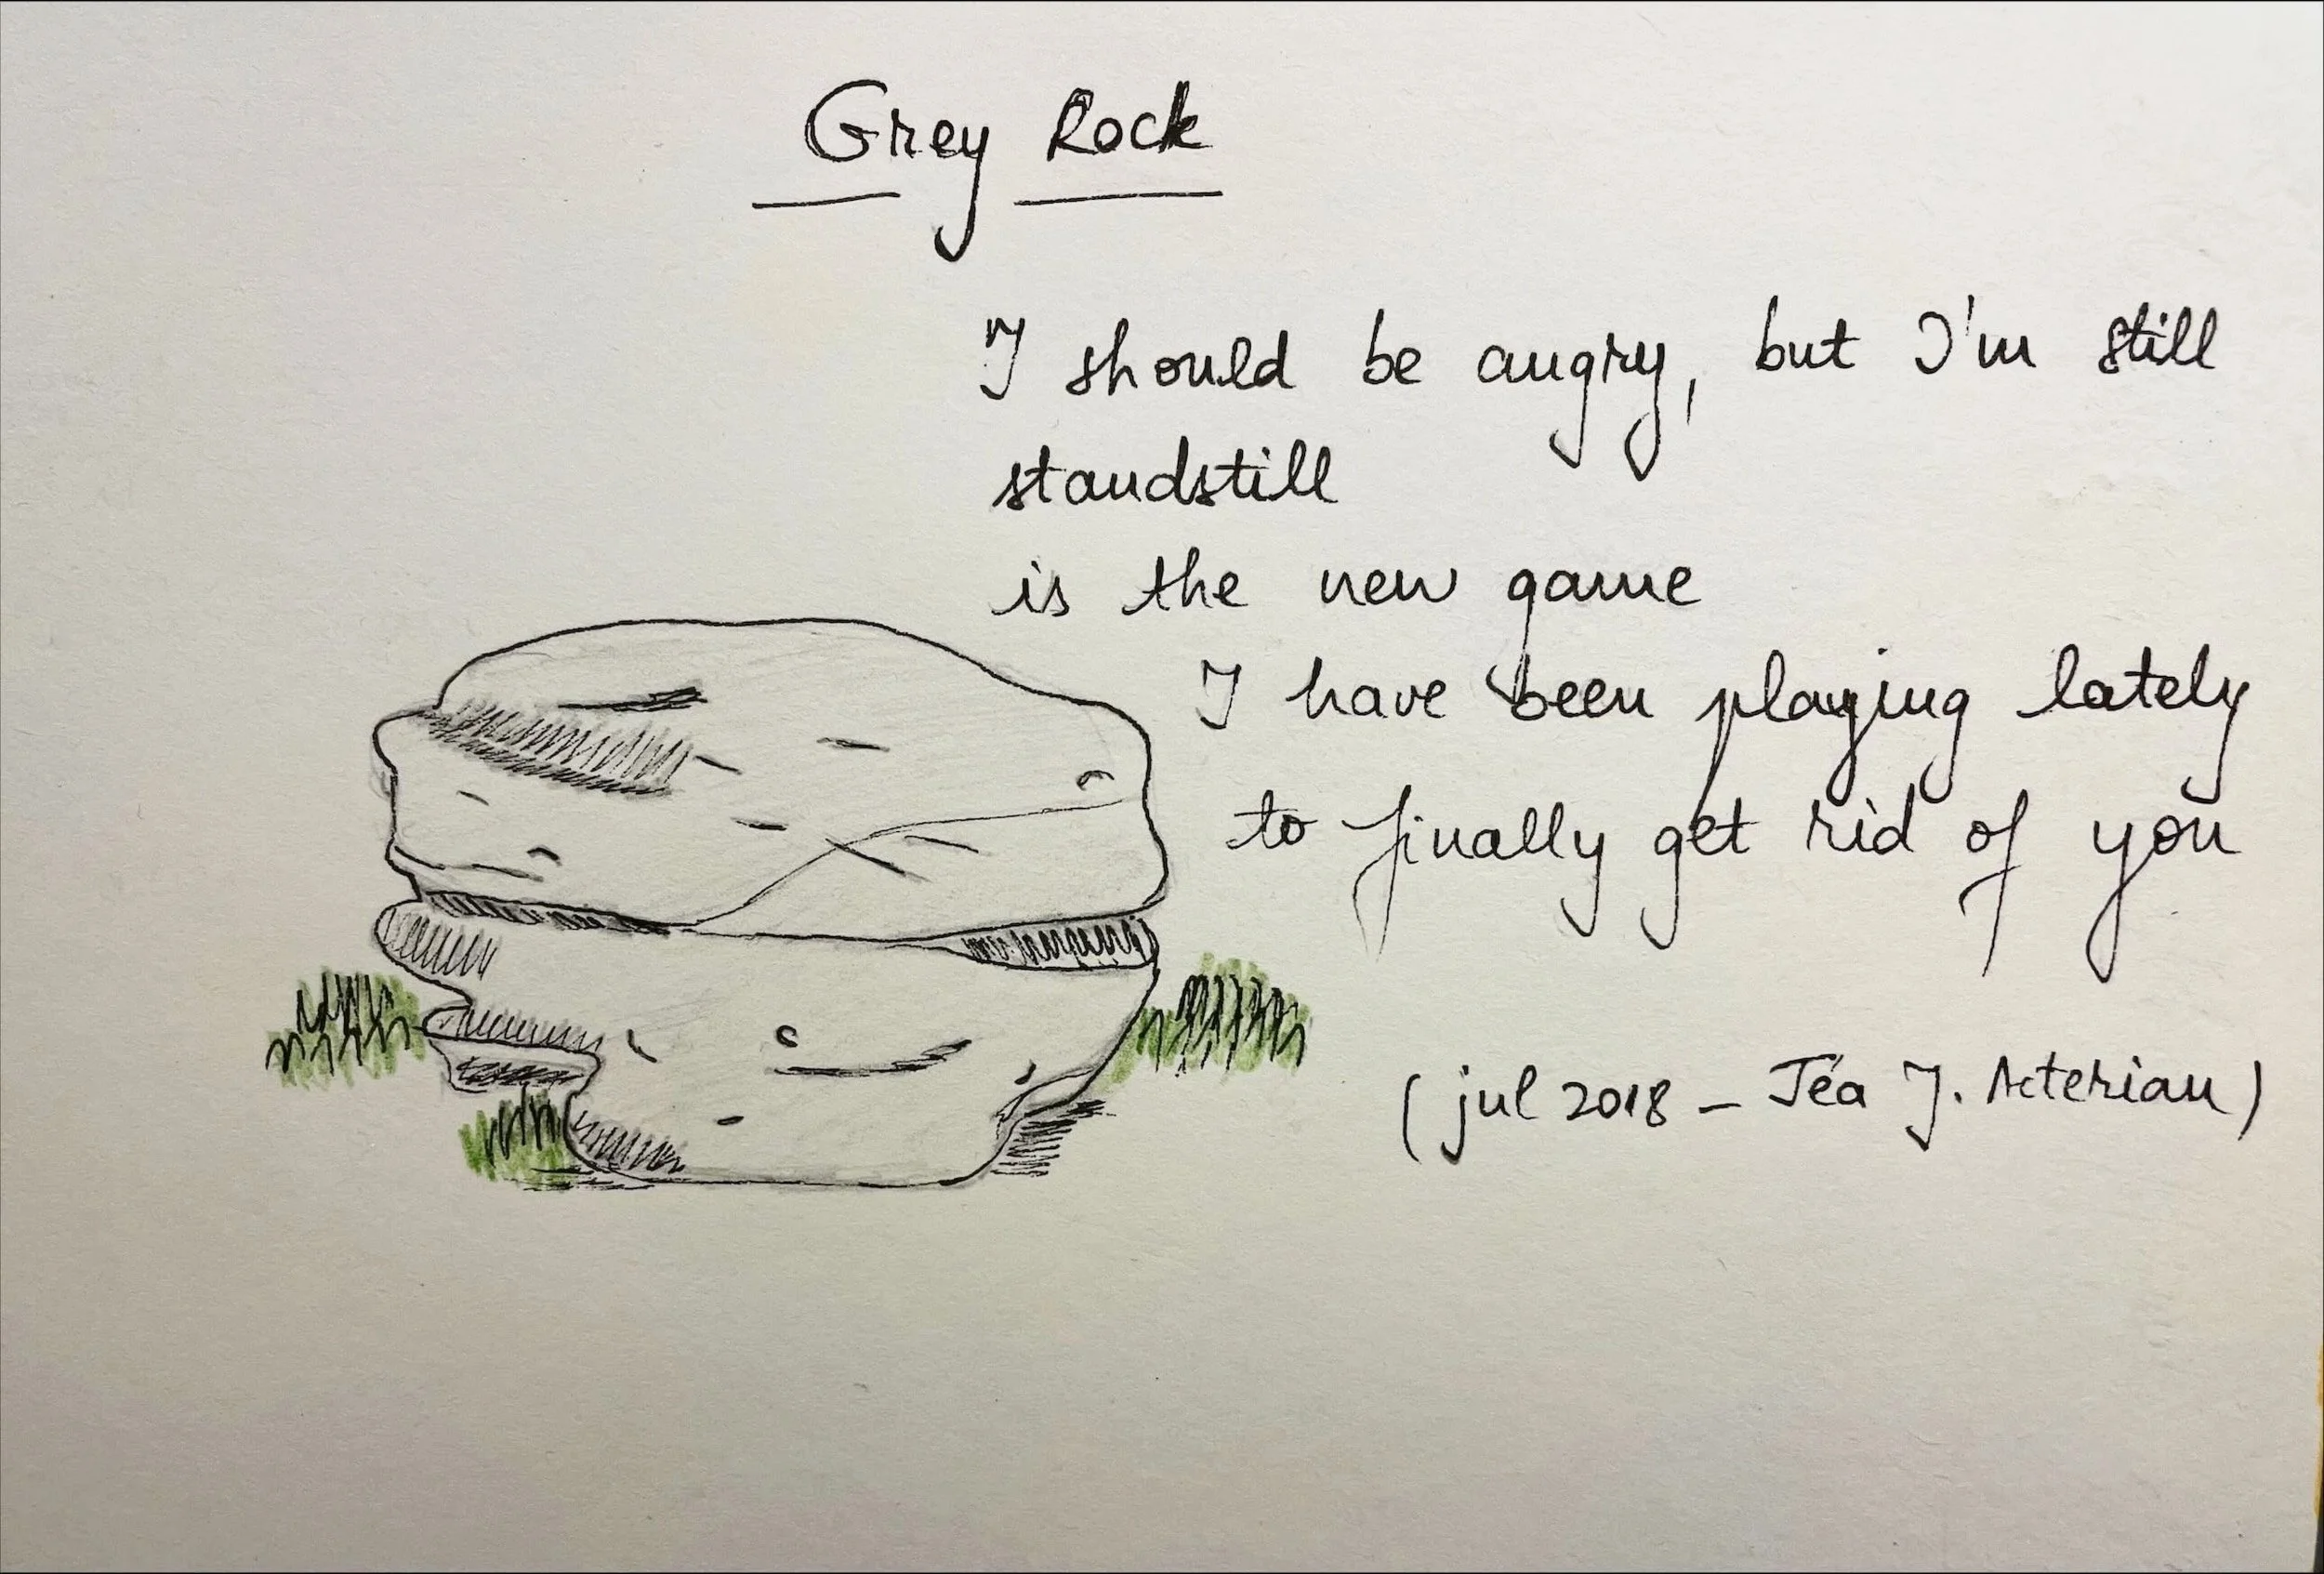 Grey Rock
I should be angry, but I'm still
standstill
is the new game
I have been playing lately
to finally get rid of you
(jul 2018 - Téa J. Acterian)